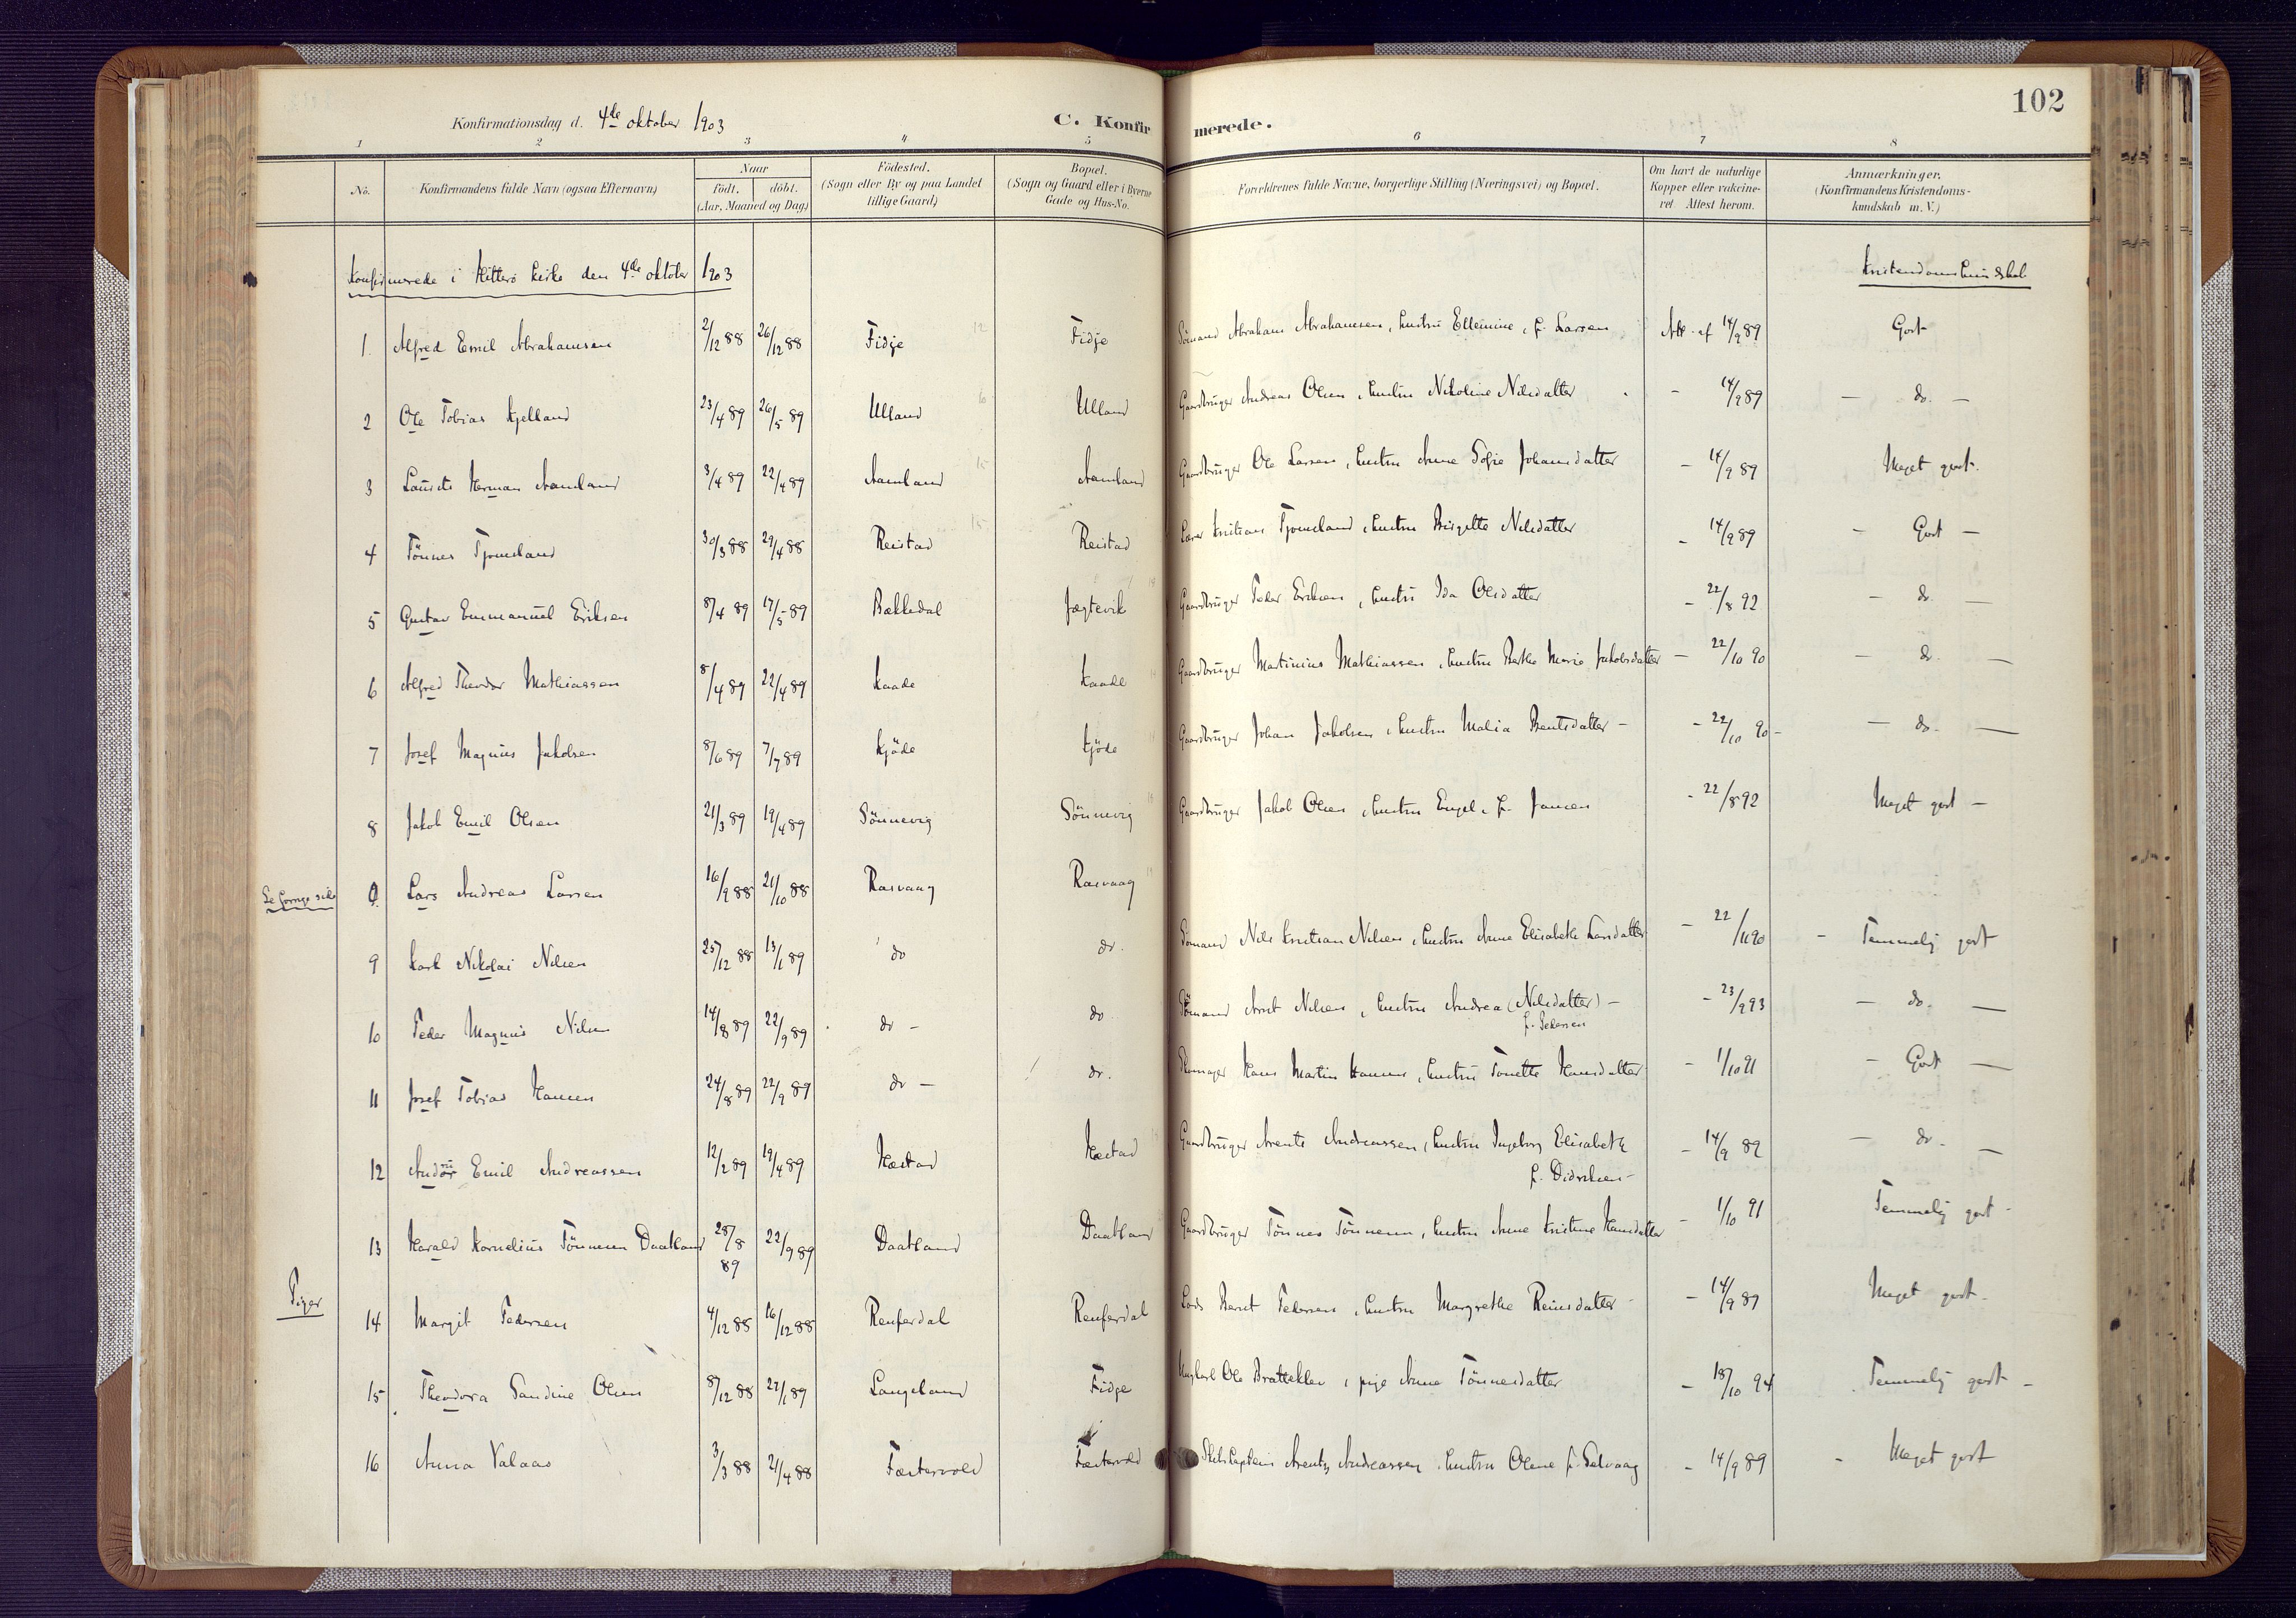 102
Konfirmationsdag d. 4de oktober 1903
C. Konfirmerede.
1 2 3 4 5 6 7 8
No. | Konfirmandens fulde Navn (ogsaa Efternavn) | Naar födt. döbt. (Aar, Maaned og Dag) | Födested. (Sogn eller By og paa Landet tillige Gaard) | Bopæl. (Sogn og Gaard eller i Byerne Gade og Hus-No. | Forældrenes fulde Navne, borgerlige Stilling (Næringsvei) og Bopæl. | Om havt de naturlige Kopper eller vakcineret. Attest herom. | Anmærkninger. (Konfirmandens Kristendomskundskab m. V.)
Konfirmerede i Hitterö kirke den 4de oktober 1903 | Kristendomskundskab
1. Alfred Emil Abrahamsen | 2/12 88 | 26/12 88 | Fidje | Fidje | Sömand Abraham Abrahamsen, hustru Ellemine, f. Larsen | Att. af 14/9 89 | Godt
2 Ole Tobias Kjelland | 23/4 89 | 26/5 89 | Ulland | Ulland | Gaardbruger Andreas Olsen, hustru Nikoline Nilsdatter | - 14/9 89 | - do. -
3 Laurits Herman Aamland | 3/4 89 | 22/4 89 | Aamland | Aamland | Gaardbruger Ole Larsen, hustru Anne Sofie Johansdatter | - 14/9 89 | Meget godt.
4 Tönnes Tjomsland | 30/3 88 | 29/4 88 | Reistad | Reistad | Lærer Kristian Tjomsland, hustru Birgitte Nilsdatter | - 14/9 89 | - Godt -
5 Gustav Emmanuel Eriksen | 8/4 89 | 17/5 89 | Bækkedal | Jægtevik | Gaardbruger Peder Eriksen, hustru Ida Olsdatter | - 22/8 92 | - do. -
6 Alfred Theodor Mathiassen | 8/4 89 | 22/4 89 | Kaade | Kaade | Gaardbruger Martinius Mathiassen, hustru Berthe Marie Jakobsdatter | - 22/10 90 | - do. -
7 Josef Magnus Jakobsen | 8/6 89 | 7/7 89 | Kjöde | Kjöde | Gaardbruger Johan Jakobsen, hustru Malia Berntsdatter - | - 22/10 90 - | - do. -
8 Jakob Emil Olsen | 21/3 89 | 19/4 89 | Sönnevig | Sönnevig | Gaardbruger Jakob Olsen, hustru Engel, f. Jansen | - 22/8 92 | Meget godt -
Se forrige side | 0. Lars Andreas Larsen | 16/9 88 | 21/10 88 | Rasvaag | Rasvaag
9 Karl Nikolai Nilsen | 25/12 88 | 13/1 89 | do | do. | Sömand Nils Kristian Nilsen, hustru Anne Elisabeth Larsdatter | - 22/11 90 | - Temmelig godt
10 Peder Magnus Nilsen | 14/8 89 | 22/9 89 | do - | do | Sömand Arnt Nilsen, hustru Andrea (Nilsdatter) - f. Pedersen | - 23/9 93 | - do. -
11 Josef Tobias Hansen | 24/8 89 | 22/9 89 | do - | do. | Skomager Hans Martin Hansen, hustru Tonette Hansdatter | - 1/10 91 | - Godt -
12 Andor Emil Andreassen | 12/2 89 | 19/4 89 | Hæstad | Hæstad | Gaardbruger Arents Andreassen, hustru Ingeborg Elisabeth f. Didriksen - | - 14/9 89 | - do. -
13 Harald Kornelius Tönnesen Daatland | 28/8 89 | 22/9 89 | Daatland | Daatland | Gaardbruger Tönnes Tönnesen, hustru Anne Kristine Hansdatter | - 1/10 91 | Temmelig godt -
Piger
14 Margit Pedersen | 4/12 88 | 16/12 88 | Renferdal | Renferdal | Lods Bernt Pedersen, hustru Margrethe Reinsdatter - | - 14/9 89 | Meget godt -
15 Theodora Sandine Olsen | 8/12 88 | 27/1 89 | Langeland | Fidje | Ungkarl Ole Bratteklev, pige Anne Tönnesdatter | - 18/10 94 | Temmelig godt -
16 Anna Valaas | 3/3 88 | 21/4 88 | Fæstervold | Fæstervold | Skibskaptein Arents Andreassen, hustru Olene f. Selvaag | - 14/9 89 | - Meget godt